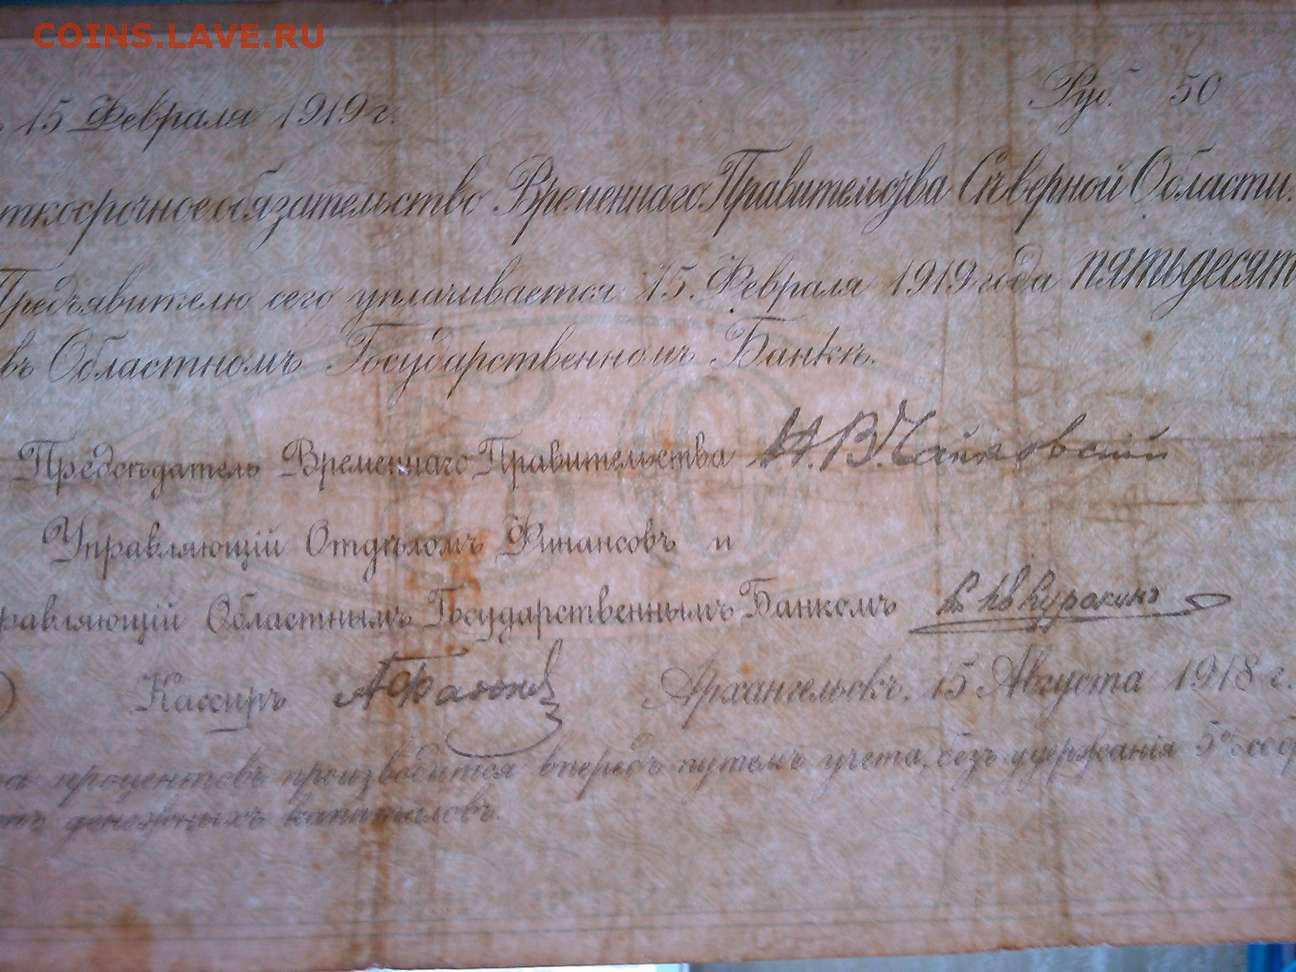 COINS.LAVE.RU
15 Февраля 1919 г. Руб. 50
ткосрочное обязательство Временнаго Правительства Сѣверной Области.
Предъявителю сего уплачивается 15 Февраля 1919 года пятьдесят
въ Областномъ Государственномъ Банкѣ.
50
Предсѣдатель Временнаго Правительства Н.В.Чайковский
Управляющій Отдѣломъ Финансовъ и
равляющій Областнымъ Государственнымъ Банкомъ Куракинъ
Кассиръ Архангельскъ, 15 Августа 1918 г.
та процентовъ производится впередъ путемъ учета, безъ удержанія 5% сбор
денежныхъ капиталовъ.